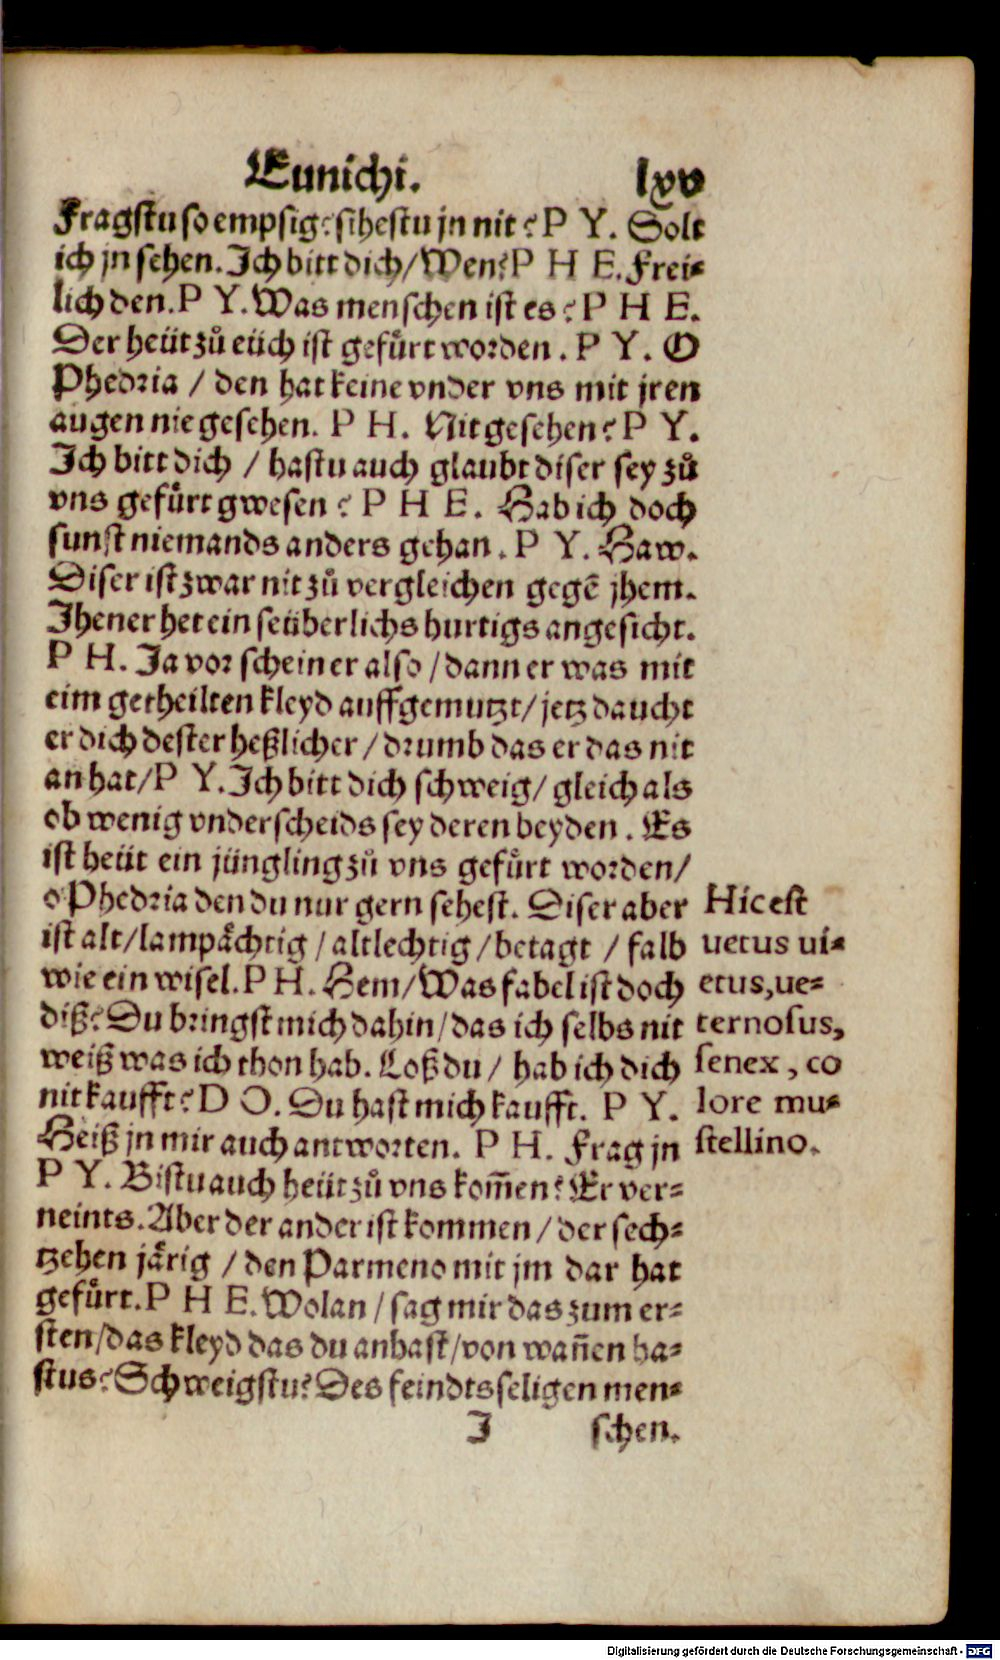 Eunichi. lxv
Fragstu so empsig? sihestu jn nit? P Y. Solt
ich jn sehen. Ich bitt dich / Wen? P H E. Frei⸗
lich den. P Y. Was menschen ist es? P H E.
Der heüt zů eüch ist gefuͤrt worden. P Y. O
Phedria / den hat keine vnder vns mit jren
augen nie gesehen. P H. Nit gesehen? P Y.
Ich bitt dich / hastu auch glaubt diser sey zů
vns gefuͤrt gwesen? P H E. Hab ich doch
sunst niemands anders gehan. P Y. Haw.
Diser ist zwar nit zů vergleichen gegē jhem.
Ihener het ein seüberlichs hurtigs angesicht.
P H. Ja vor schein er also / dann er was mit
eim getheilten kleyd auffgemutzt / jetz daucht
er dich dester heßlicher / drumb das er das nit
an hat / P Y. Ich bitt dich schweig / gleich als
ob wenig vnderscheids sey deren beyden. Es
ist heüt ein jüngling zů vns gefuͤrt worden /
o Phedria den du nur gern sehest. Diser aber
ist alt / lampaͤchtig / altlechtig / betagt / falb
wie ein wisel. P H. Hem / Was fabel ist doch
diß? Du bringst mich dahin / das ich selbs nit
weiß was ich thon hab. Loß du / hab ich dich
nit kaufft? D O. Du hast mich kaufft. P Y.
Heiß jn mir auch antworten. P H. Frag jn
P Y. Bistu auch heüt zů vns kom̄en? Er ver⸗
neints. Aber der ander ist kommen / der sech⸗
tzehen jaͤrig / den Parmeno mit jm dar hat
gefuͤrt. P H E. Wolan / sag mir das zum er⸗
sten / das kleyd das du anhast / von wan̄en ha⸗
stus? Schweigstu? Des feindtseligen men⸗
I schen.
Hic est
uetus ui⸗
etus, ue⸗
ternosus,
senex, co
lore mu⸗
stellino.
Digitalisierung gefördert durch die Deutsche Forschungsgemeinschaft - DFG